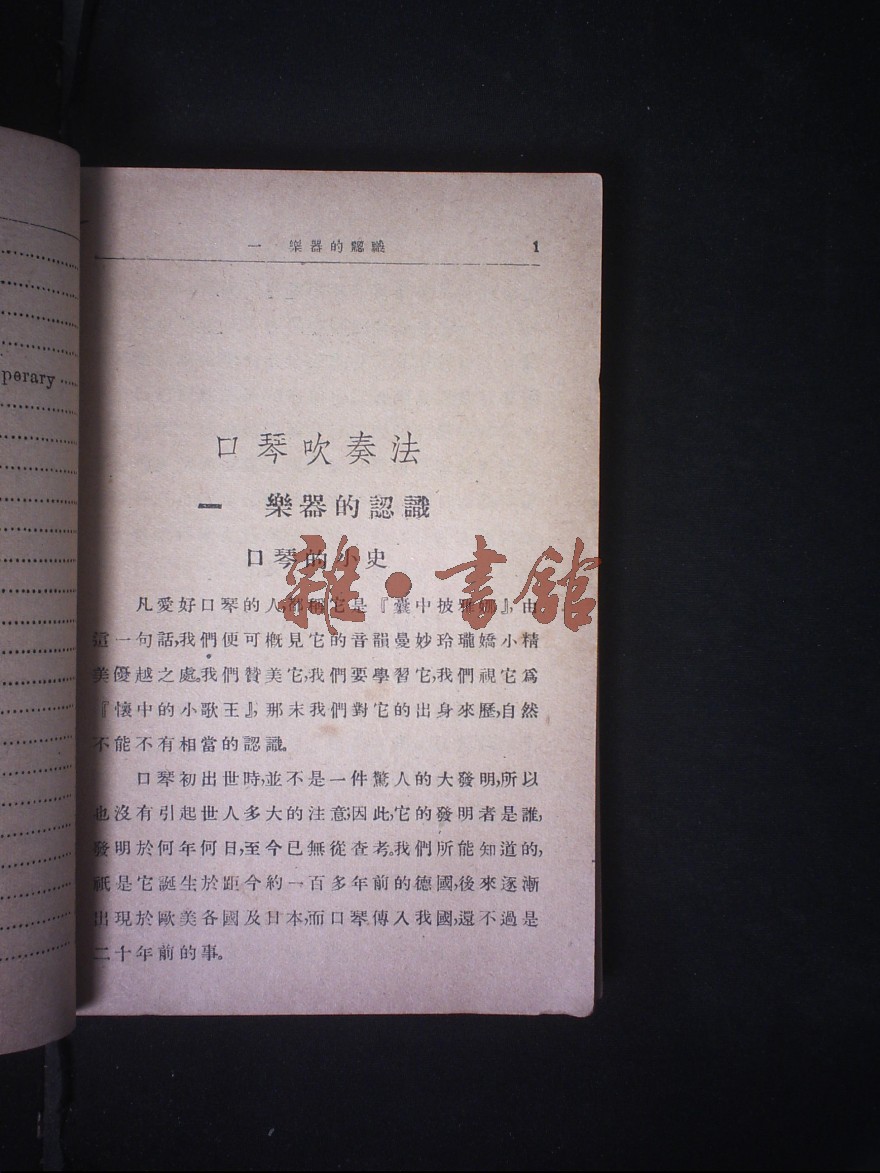 perary
一 樂器的認識 1
口琴吹奏法
一 樂器的認識
口琴的小史
雜·書館
凡愛好口琴的人,都稱它是『囊中披雅娜』,由
這一句話,我們便可概見它的音韻曼妙玲瓏嬌小精
美優越之處。我們贊美它,我們要學習它,我們視它爲
『懷中的小歌王』,那末我們對它的出身來歷,自然
不能不有相當的認識。
口琴初出世時,並不是一件驚人的大發明,所以
也沒有引起世人多大的注意;因此,它的發明者是誰,
發明於何年何日,至今已無從查考。我們所能知道的,
祇是它誕生於距今約一百多年前的德國,後來逐漸
出現於歐美各國及日本,而口琴傳入我國,還不過是
二十年前的事。